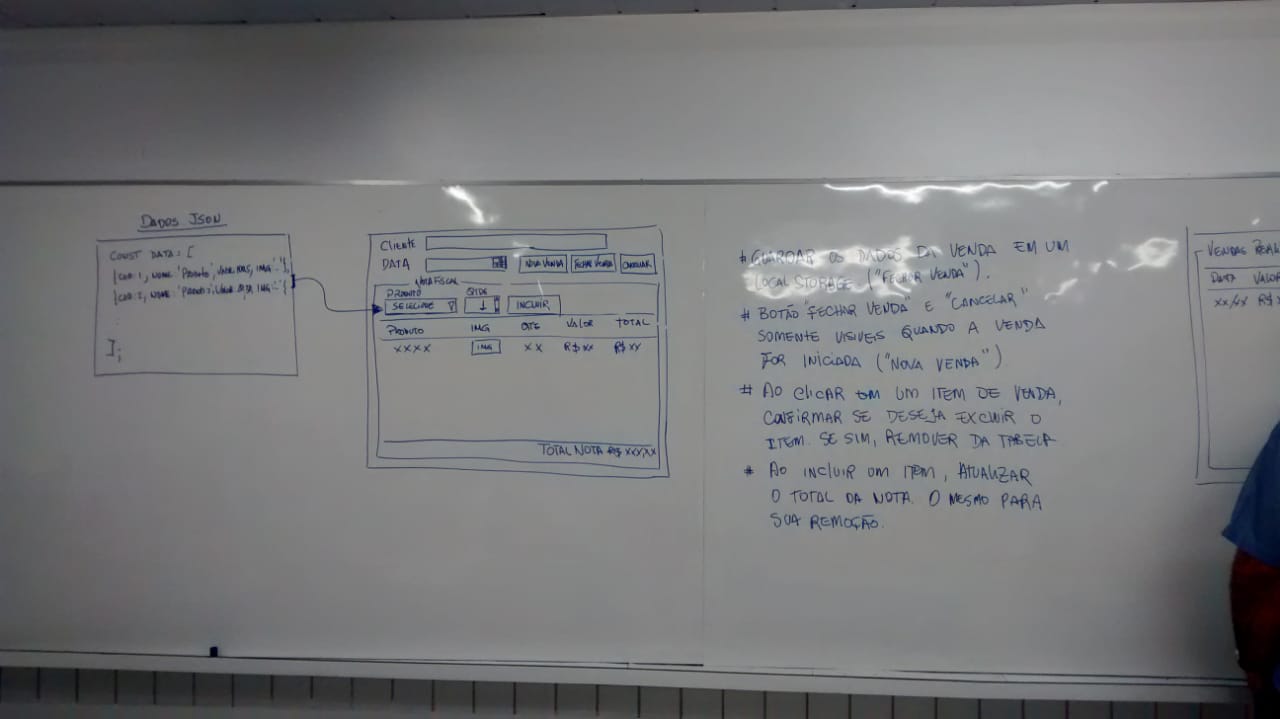 DADOS JSON
CONST DATA: [
];
CLIENTE
DATA
NOVA VENDA
FECHAR VENDA
CANCELAR
NOTA FISCAL
PRODUTO
QTDE
SELECIONE
1
INCLUIR
PRODUTO IMG QTE VALOR TOTAL
XXXX IMG XX R$ XX R$ XX
TOTAL NOTA R$ XXX,XX
# GUARDAR OS DADOS DA VENDA EM UM
LOCAL STORAGE ("FECHAR VENDA").
# BOTÃO "FECHAR VENDA" E "CANCELAR"
SOMENTE VISIVEIS QUANDO A VENDA
FOR INICIADA ("NOVA VENDA")
# AO CLICAR EM UM ITEM DE VENDA,
CONFIRMAR SE DESEJA EXCLUIR O
ITEM. SE SIM, REMOVER DA TABELA
# AO INCLUIR UM ITEM, ATUALIZAR
O TOTAL DA NOTA. O MESMO PARA
SUA REMOÇÃO.
VENDAS REAL
DATA VALOR
XX/XX R$